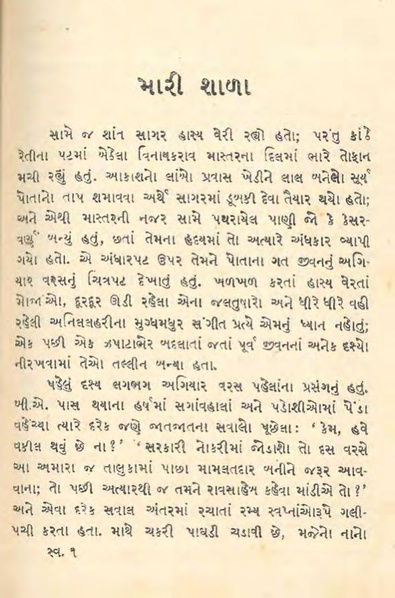 મારી શાળા
સામે જ શાંત સાગર હાસ્ય વેરી રહ્યો હતો; પરંતુ કાંઠે
રેતીના પટમાં બેઠેલા વિનાયકરાવ માસ્તરના દિલમાં ભારે તોફાન
મચી રહ્યું હતું. આકાશનો લાંબો પ્રવાસ ખેડીને લાલ બનેલો સૂર્ય
પોતાનો તાપ શમાવવા અર્થે સાગરમાં ડૂબકી દેવા તૈયાર થયો હતો;
અને એથી માસ્તરની નજર સામે પથરાયેલ પાણી જો કે કેસર-
વર્ણું બન્યું હતું, છતાં તેમના હૃદયમાં તો અત્યારે અંધકાર વ્યાપી
ગયો હતો. એ અંધારપટ ઉપર તેમને પોતાના ગત જીવનનું અગિ-
યાર વરસનું ચિત્રપટ દેખાતું હતું. ખળખળ કરતાં હાસ્ય વેરતાં
મોજાંઓ, દૂરદૂર ઊડી રહેલા એના જલતુષારો અને ધીરે ધીરે વહી
રહેલી અનિલલહરીના મુગ્ધમધુર સંગીત પ્રત્યે એમનું ધ્યાન નહોતું;
એક પછી એક ઝપાટાભેર બદલાતાં જતાં પૂર્વ જીવનનાં અનેક દૃશ્યો
નીરખવામાં તેઓ તલ્લીન બન્યા હતા.
પહેલું દૃશ્ય લગભગ અગિયાર વરસ પહેલાંના પ્રસંગનું હતું.
બી.એ. પાસ થયાના હર્ષમાં સગાંવહાલાં અને પડોશીઓમાં પેંડા
વહેંચ્યા ત્યારે દરેક જણે જાતજાતના સવાલો પૂછેલા: ‘કેમ, હવે
વકીલ થવું છે ના?’ ‘સરકારી નોકરીમાં જોડાશો તો દસ વરસે
આ અમારા જ તાલુકામાં પાછા મામલતદાર બનીને જરૂર આવ-
વાના; તો પછી અત્યારથી જ તમને રાવસાહેબ કહેવા માંડીએ તો?’
અને એવા દરેક સવાલ અંતરમાં રચાતાં રમ્ય સ્વપ્નાંઓરૂપે ગલી-
પચી કરતા હતા. માથે ચકરી પાઘડી ચડાવી છે, મજેનો નાનો
સ્વ. ૧